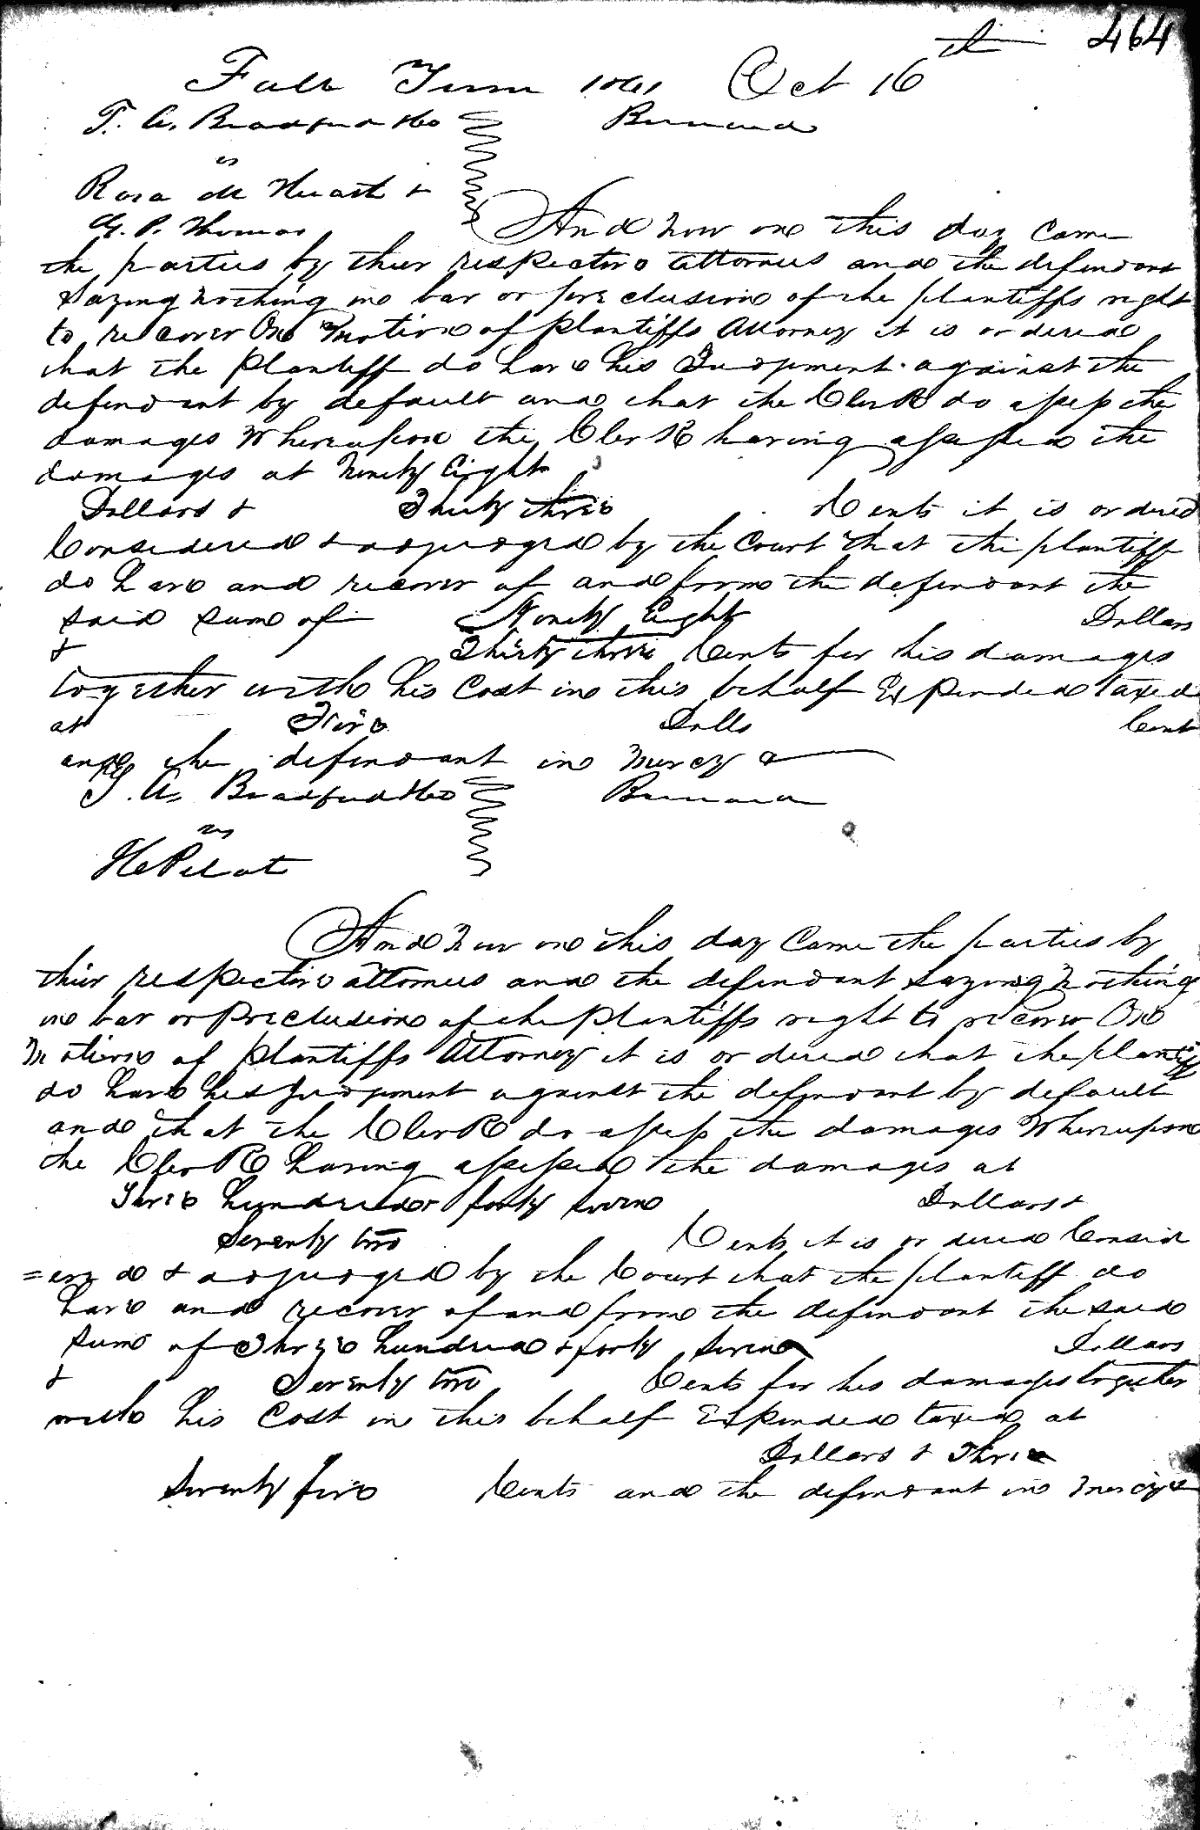 464
Fall Term 1861 Oct 16th
T. A. Bradford & Co
vs
Rosa &
G. P. Thomas
And now on this day came
the parties by their respective attorneys and the defendant
saying nothing in bar or preclusion of the plantiffs right
to recover On motion of plantiffs Attorney it is ordered
that the plantiff do have his Judgment against the
defendant by default and that the Clerk do assess the
damages Whereupon the Clerk having assessed the
damages at Ninety Eight
Dollars & Thirty three Cents it is ordered
Considered & adjudged by the Court that the plantiff
do have and recover of and from the defendant the
said sum of Ninety Eight Dollars
& Thirty three Cents for his damages
together with his Cost in this behalf Expended taxed
at Five Dolls Cents
and the defendant in mercy &
T. A. Bradford & Co
vs
And now on this day Came the parties by
their respective attorneys and the defendant saying nothing
in bar or preclusion of the plantiffs right to recover On
Motion of plantiffs Attorney it is ordered that the plantiff
do have his Judgment against the defendant by default
and that the Clerk do assess the damages Whereupon
the Clerk having assessed the damages at
Three hundred & forty seven Dollars &
Seventy two Cents it is ordered Consid
=ered & adjudged by the Court that the plantiff do
have and recover of and from the defendant the said
sum of Three hundred & forty seven Dollars
& Seventy two Cents for his damages together
with his Cost in this behalf Expended taxed at
Dollars & Three
Seventy five Cents and the defendant in mercy &